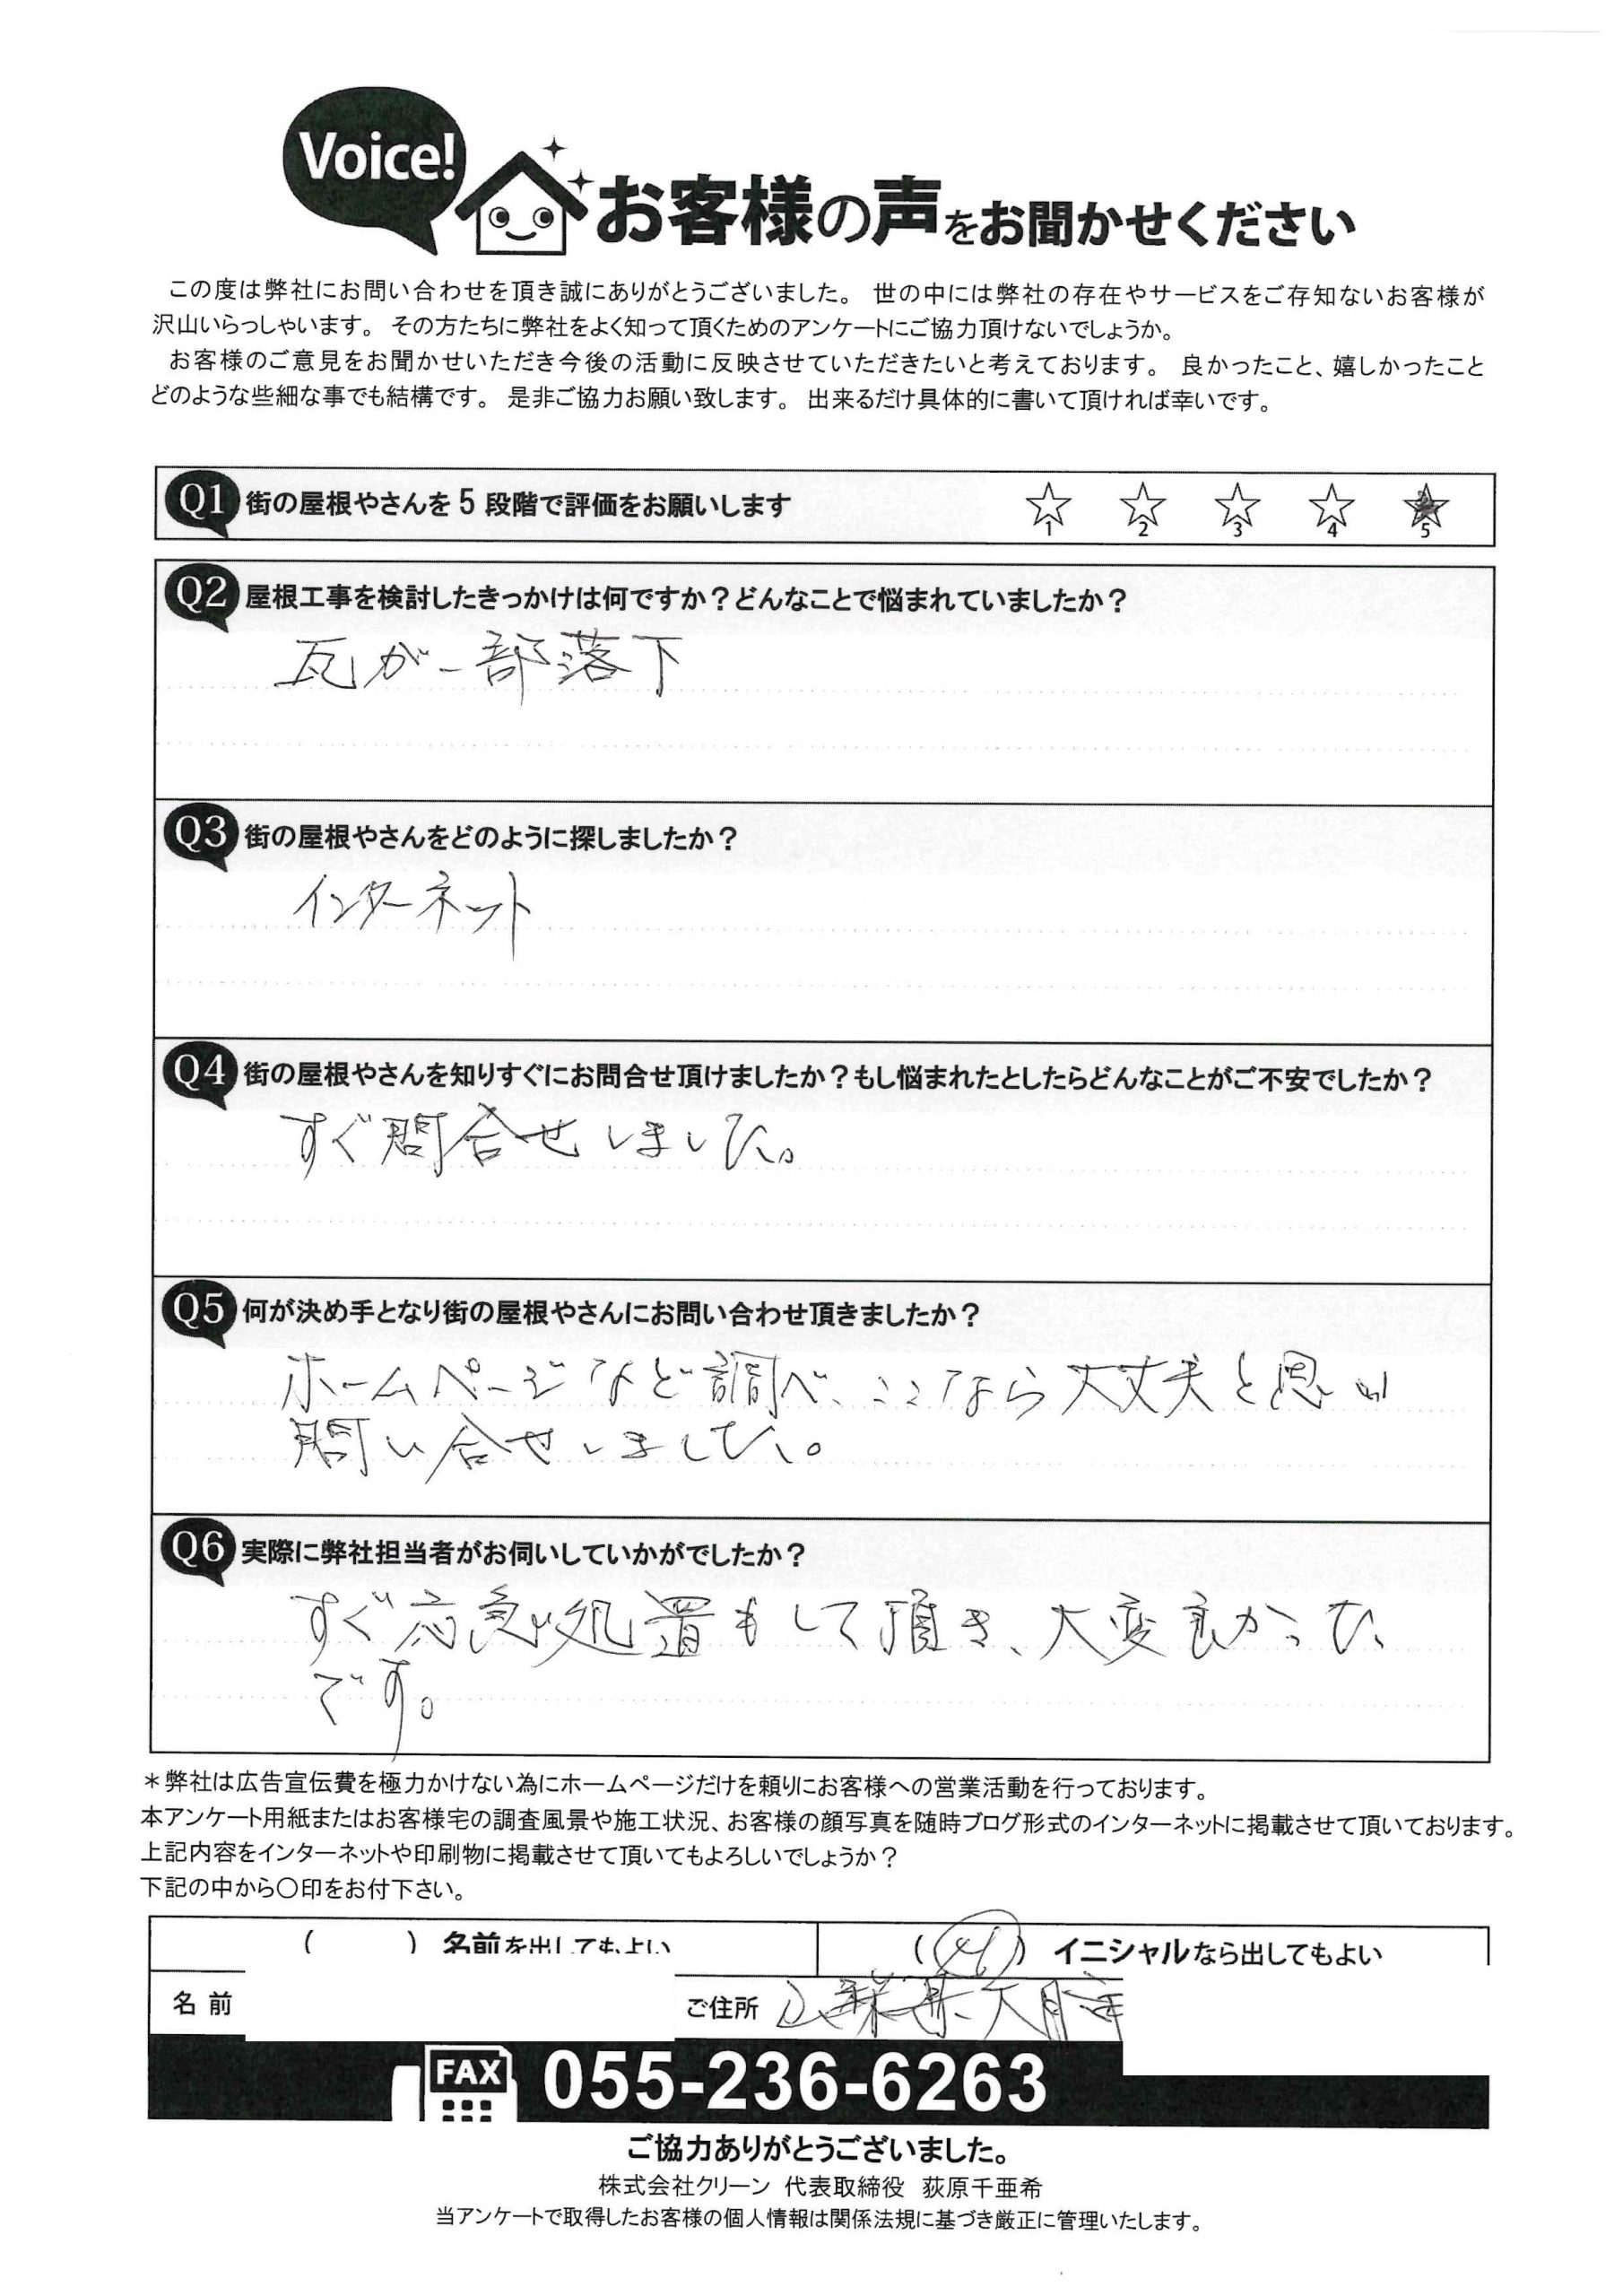 Voice!
お客様の声をお聞かせください
この度は弊社にお問い合わせを頂き誠にありがとうございました。 世の中には弊社の存在やサービスをご存知ないお客様が
沢山いらっしゃいます。 その方たちに弊社をよく知って頂くためのアンケートにご協力頂けないでしょうか。
お客様のご意見をお聞かせいただき今後の活動に反映させていただきたいと考えております。 良かったこと、嬉しかったこと
どのような些細な事でも結構です。 是非ご協力お願い致します。 出来るだけ具体的に書いて頂ければ幸いです。
Q1 街の屋根やさんを5段階で評価をお願いします ☆1 ☆2 ☆3 ☆4 ★5
Q2 屋根工事を検討したきっかけは何ですか？どんなことで悩まれていましたか？
瓦が一部落下
Q3 街の屋根やさんをどのように探しましたか？
インターネット
Q4 街の屋根やさんを知りすぐにお問合せ頂けましたか？もし悩まれたとしたらどんなことがご不安でしたか？
すぐ問合せしました。
Q5 何が決め手となり街の屋根やさんにお問い合わせ頂きましたか？
ホームページなど調べ、ここなら大丈夫と思い
問い合せしました。
Q6 実際に弊社担当者がお伺いしていかがでしたか？
すぐ応急処置もして頂き、大変良かった
です。
＊弊社は広告宣伝費を極力かけない為にホームページだけを頼りにお客様への営業活動を行っております。
本アンケート用紙またはお客様宅の調査風景や施工状況、お客様の顔写真を随時ブログ形式のインターネットに掲載させて頂いております。
上記内容をインターネットや印刷物に掲載させて頂いてもよろしいでしょうか？
下記の中から〇印をお付下さい。
（ ） 名前を出してもよい （ ） イニシャルなら出してもよい
名前 ご住所 山梨県大月市
FAX 055-236-6263
ご協力ありがとうございました。
株式会社クリーン 代表取締役 荻原千亜希
当アンケートで取得したお客様の個人情報は関係法規に基づき厳正に管理いたします。